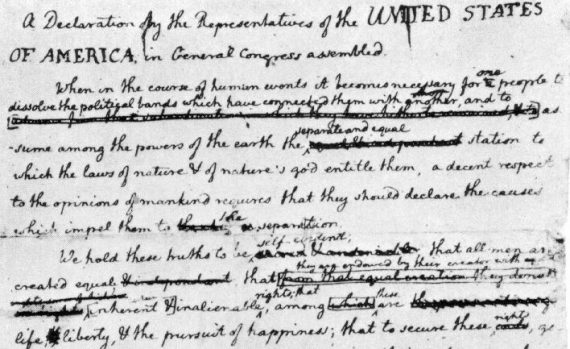 A Declaration by the Representatives of the UNITED STATES
OF AMERICA, in General Congress assembled.
When in the course of human events it becomes necessary for one people to
dissolve the political bands which have connected them with another, and to
as-
separate and equal
-sume among the powers of the earth the station to
which the laws of nature & of nature's god entitle them, a decent respect
to the opinions of mankind requires that they should declare the causes
which impel them to the separation.
self-evident;
We hold these truths to be that all men are
they are endowed by their creator with
created equal & independant; that from that equal creation they
rights; that these
inherent & inalienable, among which are
life, liberty, & the pursuit of happiness; that to secure these rights, go-